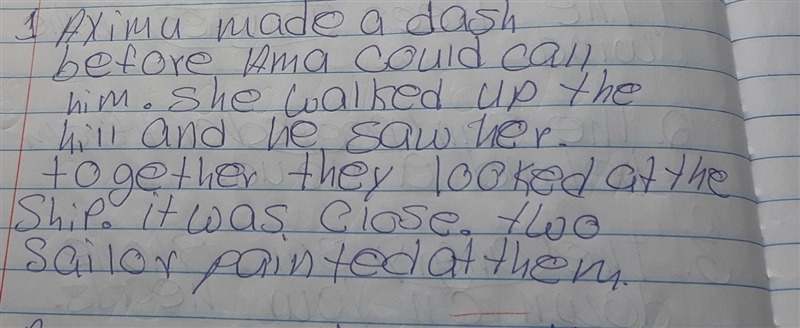 1 Aximu made a dash
before Ama could call
him. she walked up the
hill and he saw her.
together they looked at the
Ship. it was close. two
Sailor painted at them.